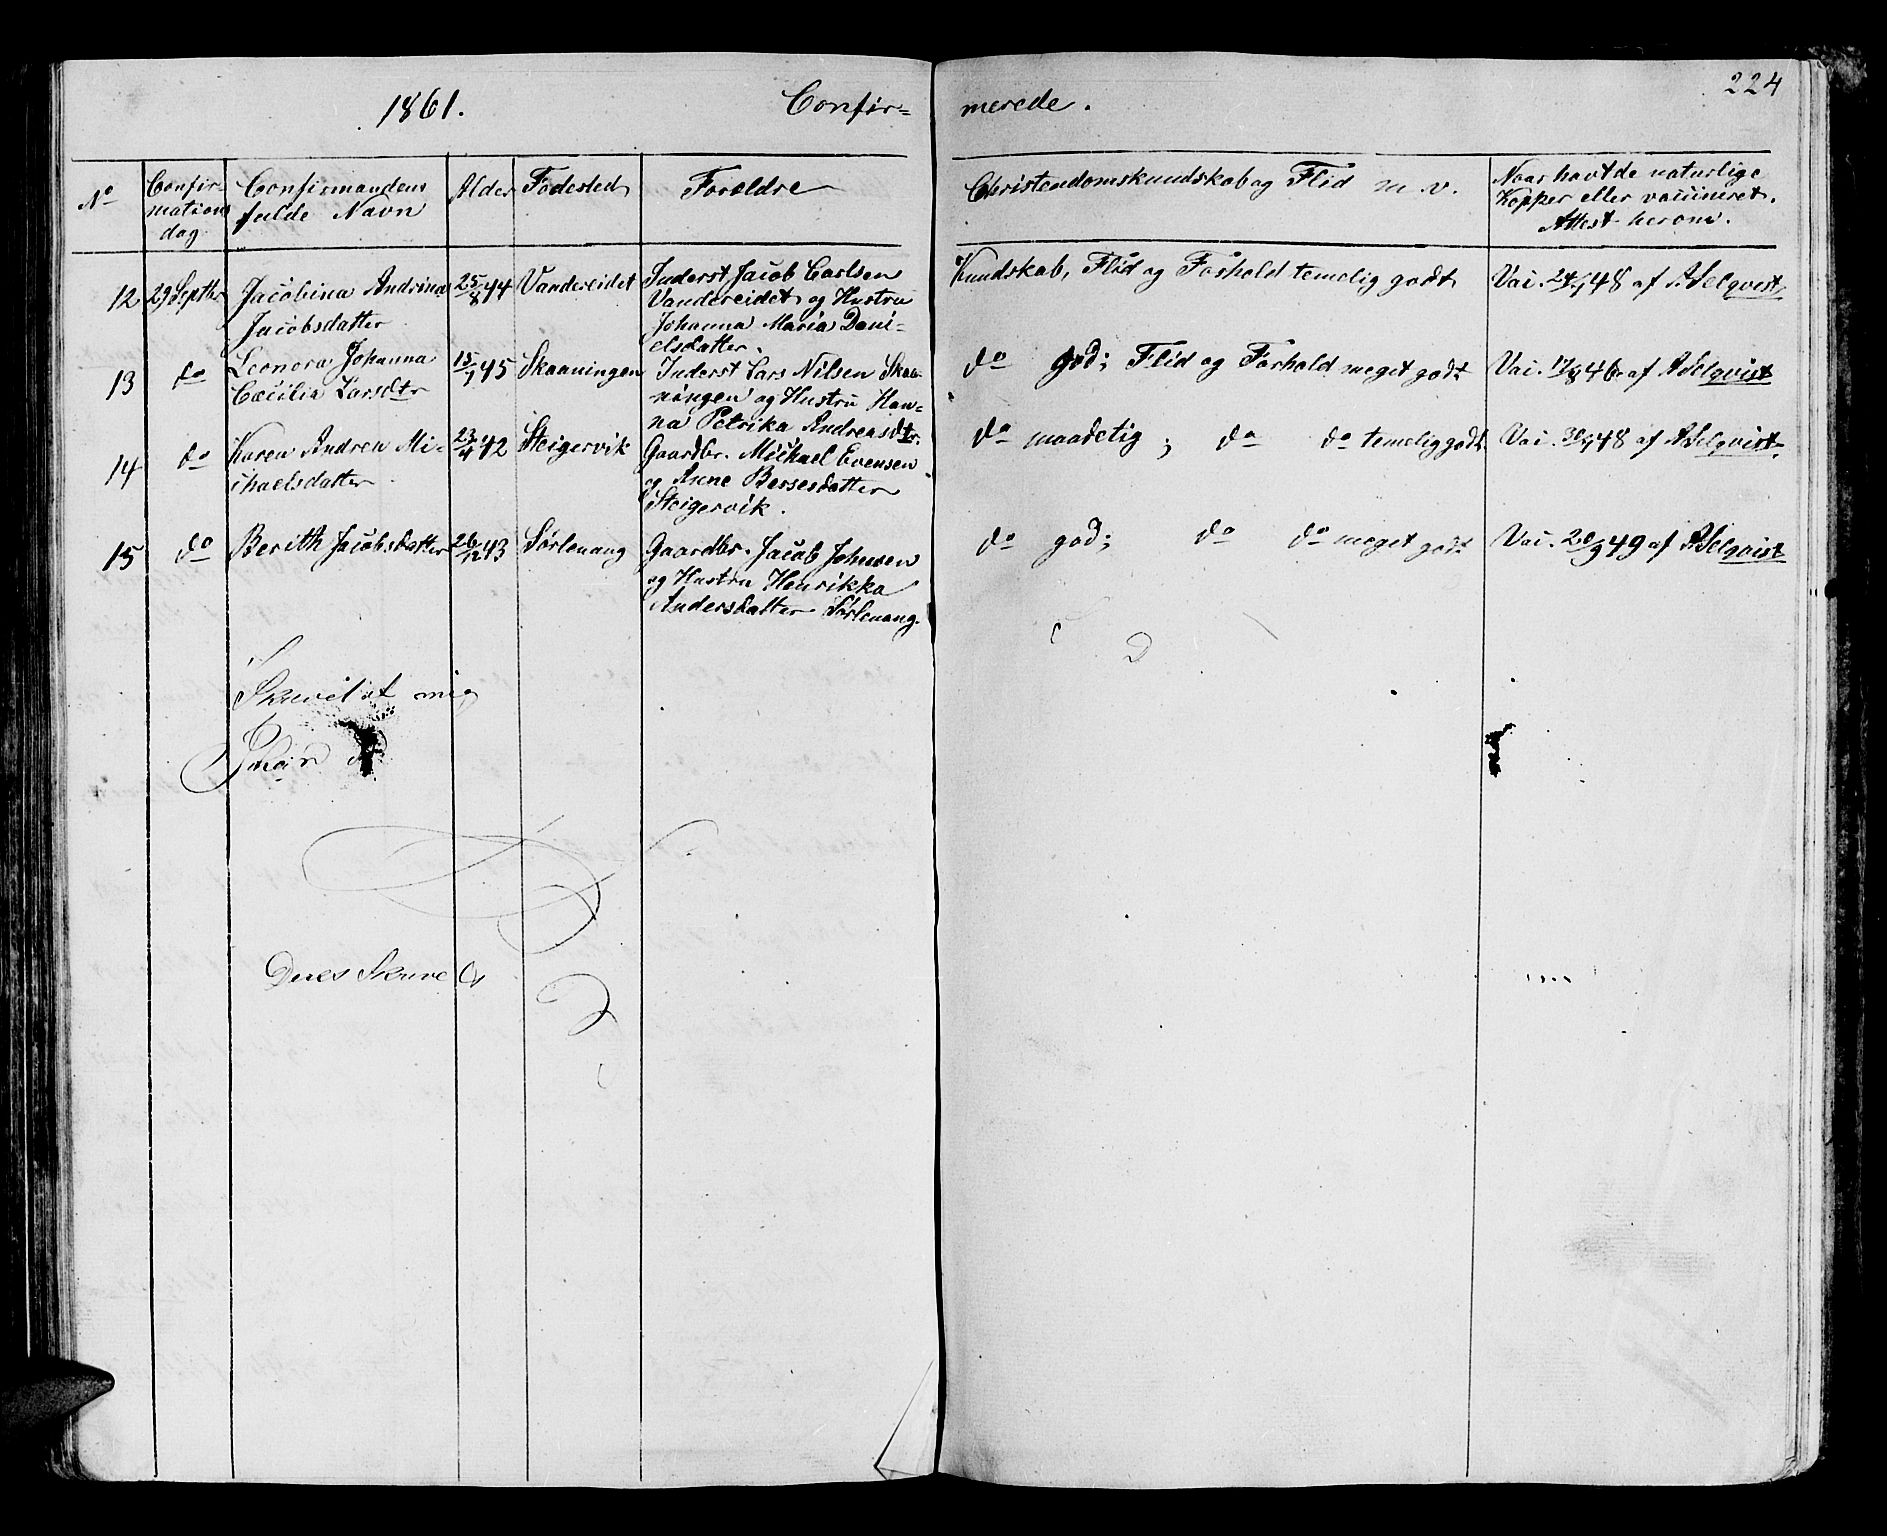 224
1861. Confir= merede.
No
Confir-
mations
dag
Confirmandens
fulde Navn
Alder
Fødested
Forældre
Christendomskundskab og Flid m. v.
Naar havt de naturlige
Kopper eller vaccineret.
Attest herom.
12 29 Septbr Jacobina Andrina
Jacobsdatter
25/8 44 Vandereidet
Inderst Jacob Carlsen
Vandereidet og Hustru
Johanna Maria Dani-
elsdatter.
Kundskab, Flid og Forhold temelig godt
Vac. 48 af A. Selqvist
13 do Leonora Johanna
Cæcilia Larsdtr
15/1 45 Skaaningen
Inderst Lars Nilsen Skaa-
ningen og Hustru Han-
na Petrika Andreasdtr.
do god; Flid og Forhold meget godt
Vac. 17/8 46 af A Selqvist
14 do Karen Andrea Mi-
chaelsdatter
23/4 42 Steigervik
Gaardbr. Michael Evensen
og Anne Bersesdatter
Steigervik.
do maadelig; do do temelig godt
Vac. 48 af A Selqvist.
15 do Berith Jacobsdatter
26/12 43 Sørlenang
Gaardbr. Jacob Johnsen
og Hustru Henrikka
Andersdatter Sørlenang.
do god; do do meget godt
Vac. 20/9 49 af A Selqvist
mig
Deres